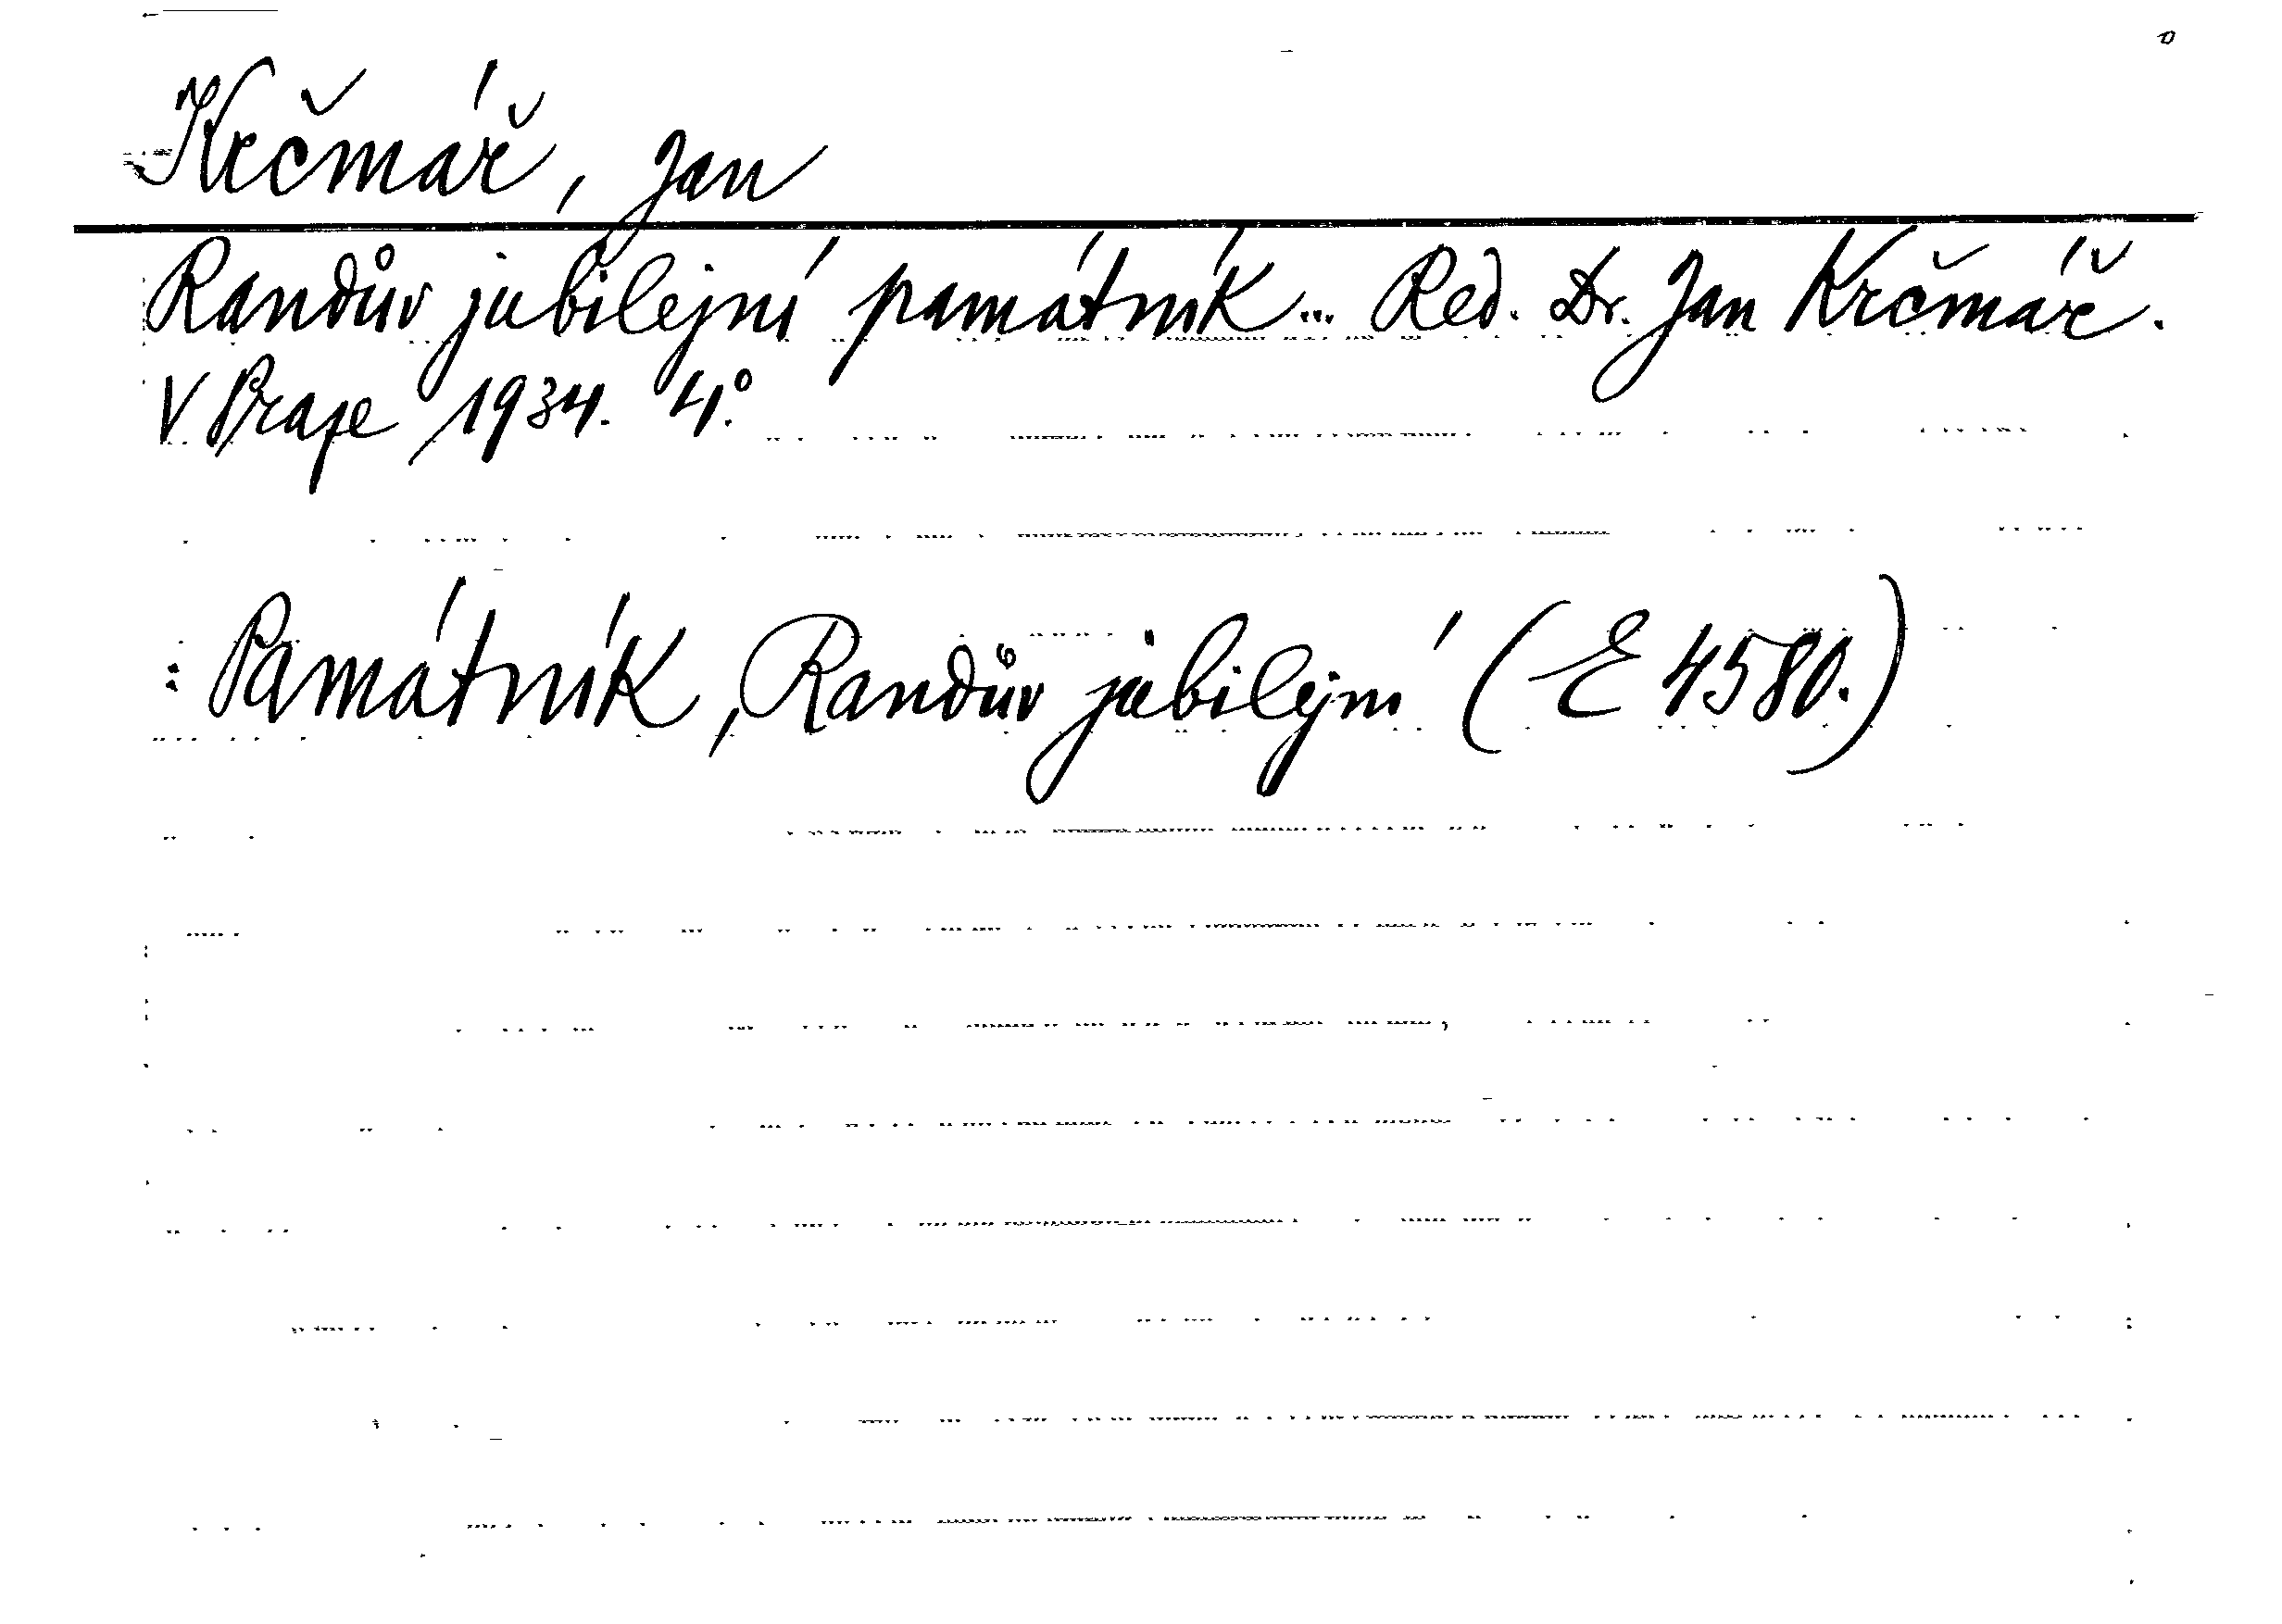 Krčmář, Jan
Randův jubilejní památník... Red. Dr. Jan Krčmář.
V Praze 1934. 4.°
: Památník, Randův jubilejní (E 4580.)